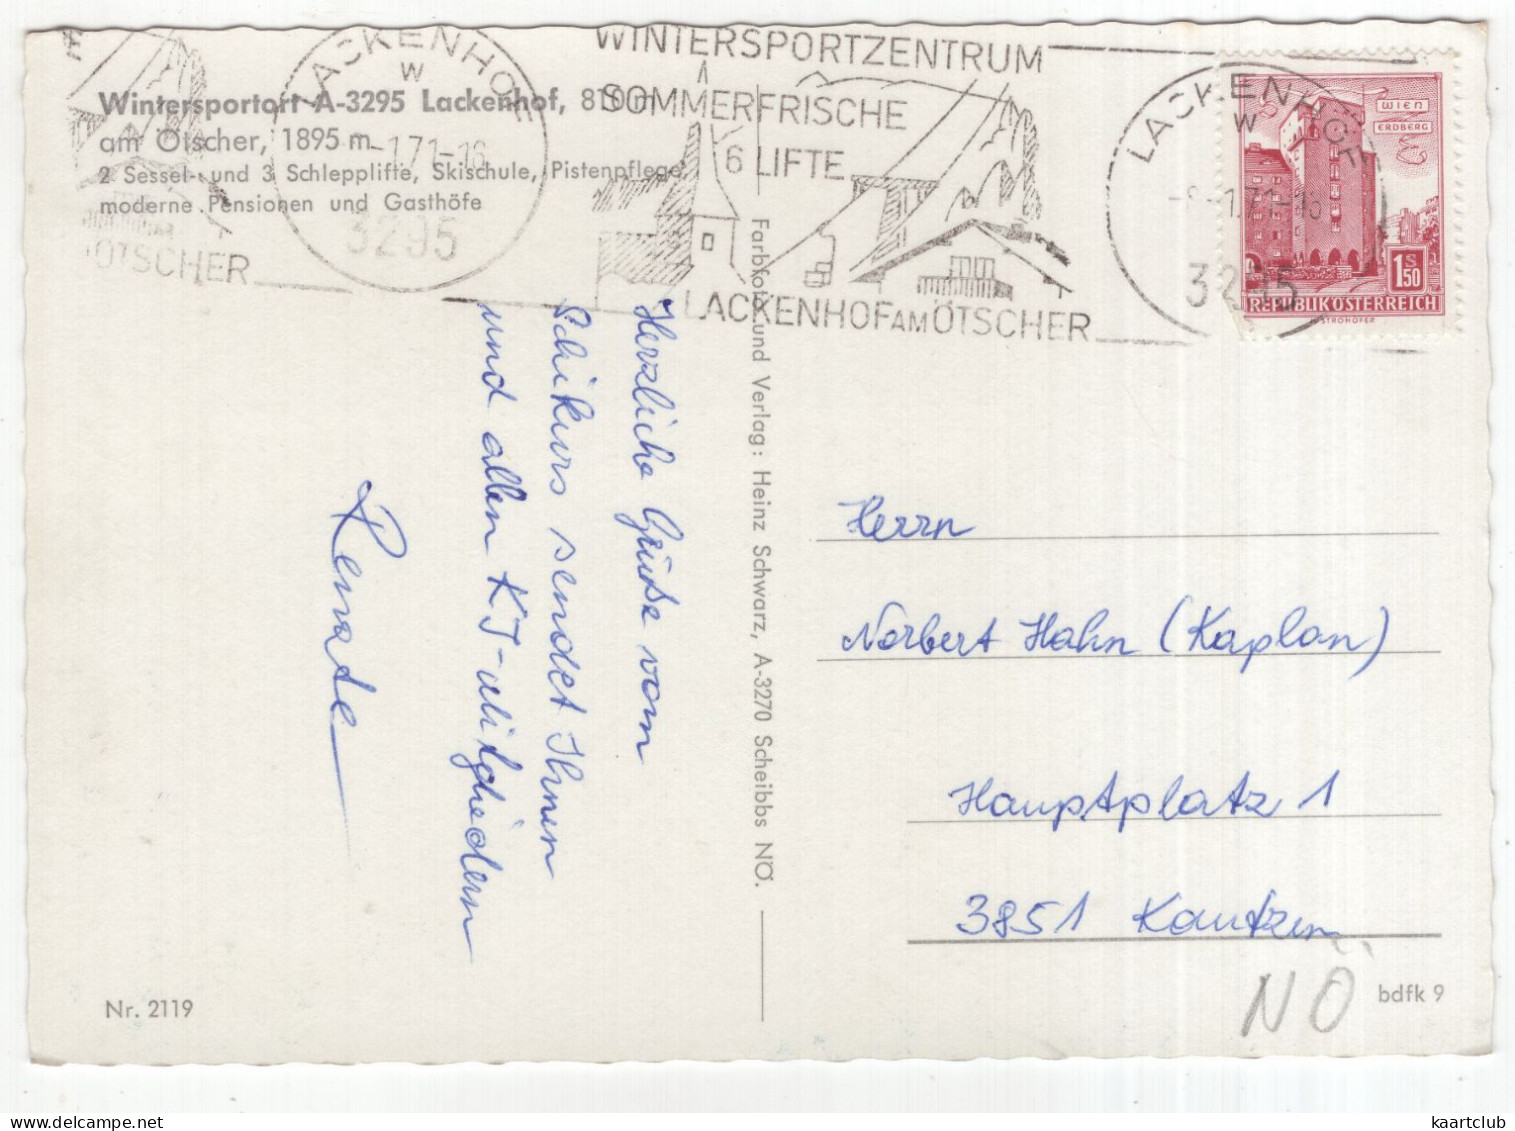 Wintersportort A-3295 Lackenhof, 810 m
am Ötscher, 1895 m
2 Sessel- und 3 Schlepplifte, Skischule, Pistenpflege,
moderne Pensionen und Gasthöfe
ÖTSCHER
LACKENHOF
W
-1.71-16
3295
WINTERSPORTZENTRUM
SOMMERFRISCHE
6 LIFTE
LACKENHOF AM ÖTSCHER
LACKENHOF
W
1.71-16
3295
WIEN
ERDBERG
1 S 50
REPUBLIK ÖSTERREICH
STROHOFER
Herzliche Grüße vom
Schikurs sendet Ihnen
und allen KJ-Mitgliedern
Renate
Farbfoto und Verlag: Heinz Schwarz, A-3270 Scheibbs NÖ.
Herrn
Norbert Hahn (Kaplan)
Hauptplatz 1
3851 Kautzen
NÖ
Nr. 2119
bdfk 9
kaartclub